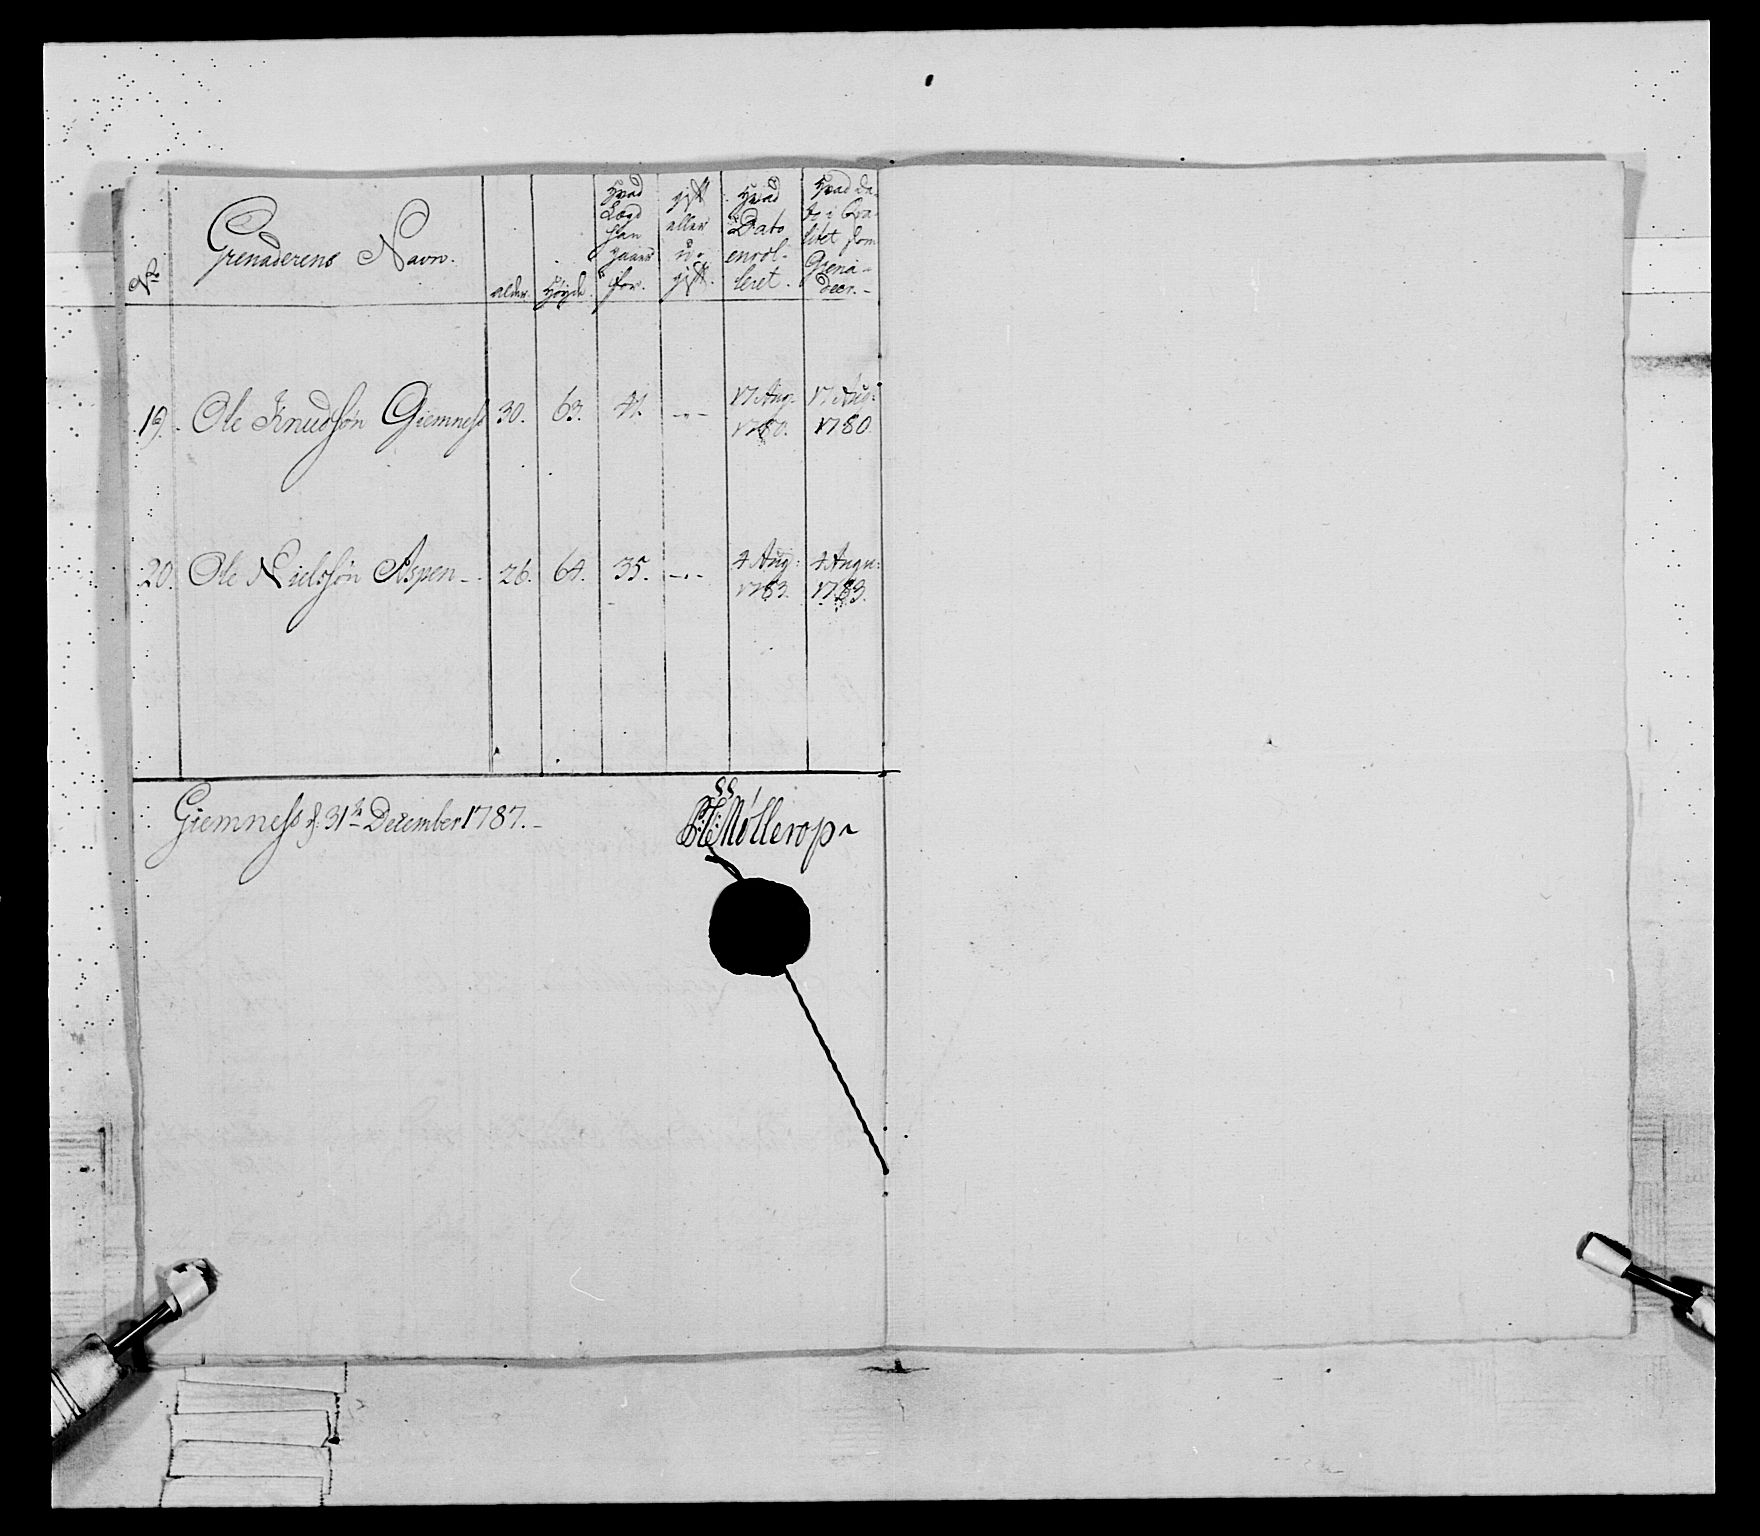 No
Grenaderens Navn.
alder.
Høyde
Hvad Lægd Han staaer for.
gift eller u- gift.
Hvad Dato enrol- leret.
Hvad Da- to i Qva- litet som Grena- deer.-
19. Ole Knudssøn Giemness 30. 63. 41. -.- 17 Aug: 1780. 17 Aug: 1780.
20. Ole Nielssøn Aspen -. 26. 64. 35. -.- 4 Aug: 1783. 4 Augu: 1783.
Giemness d. 31te December 1787.-
Møllerop